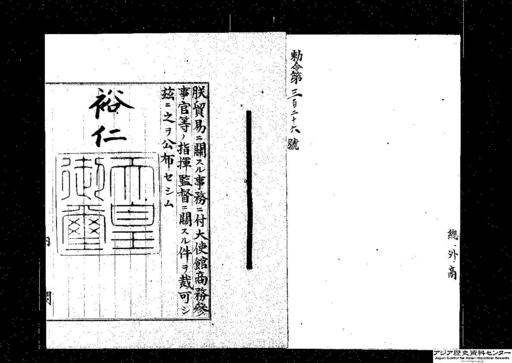 勅令第三百二十六號
總、外商
朕貿易ニ關スル事務ニ付大使館商務參
事官等ノ指揮監督ニ關スル件ヲ裁可シ
茲ニ之ヲ公布セシム
裕仁
天皇
御璽
アジア歴史資料センター
Japan Center for Asian Historical Records